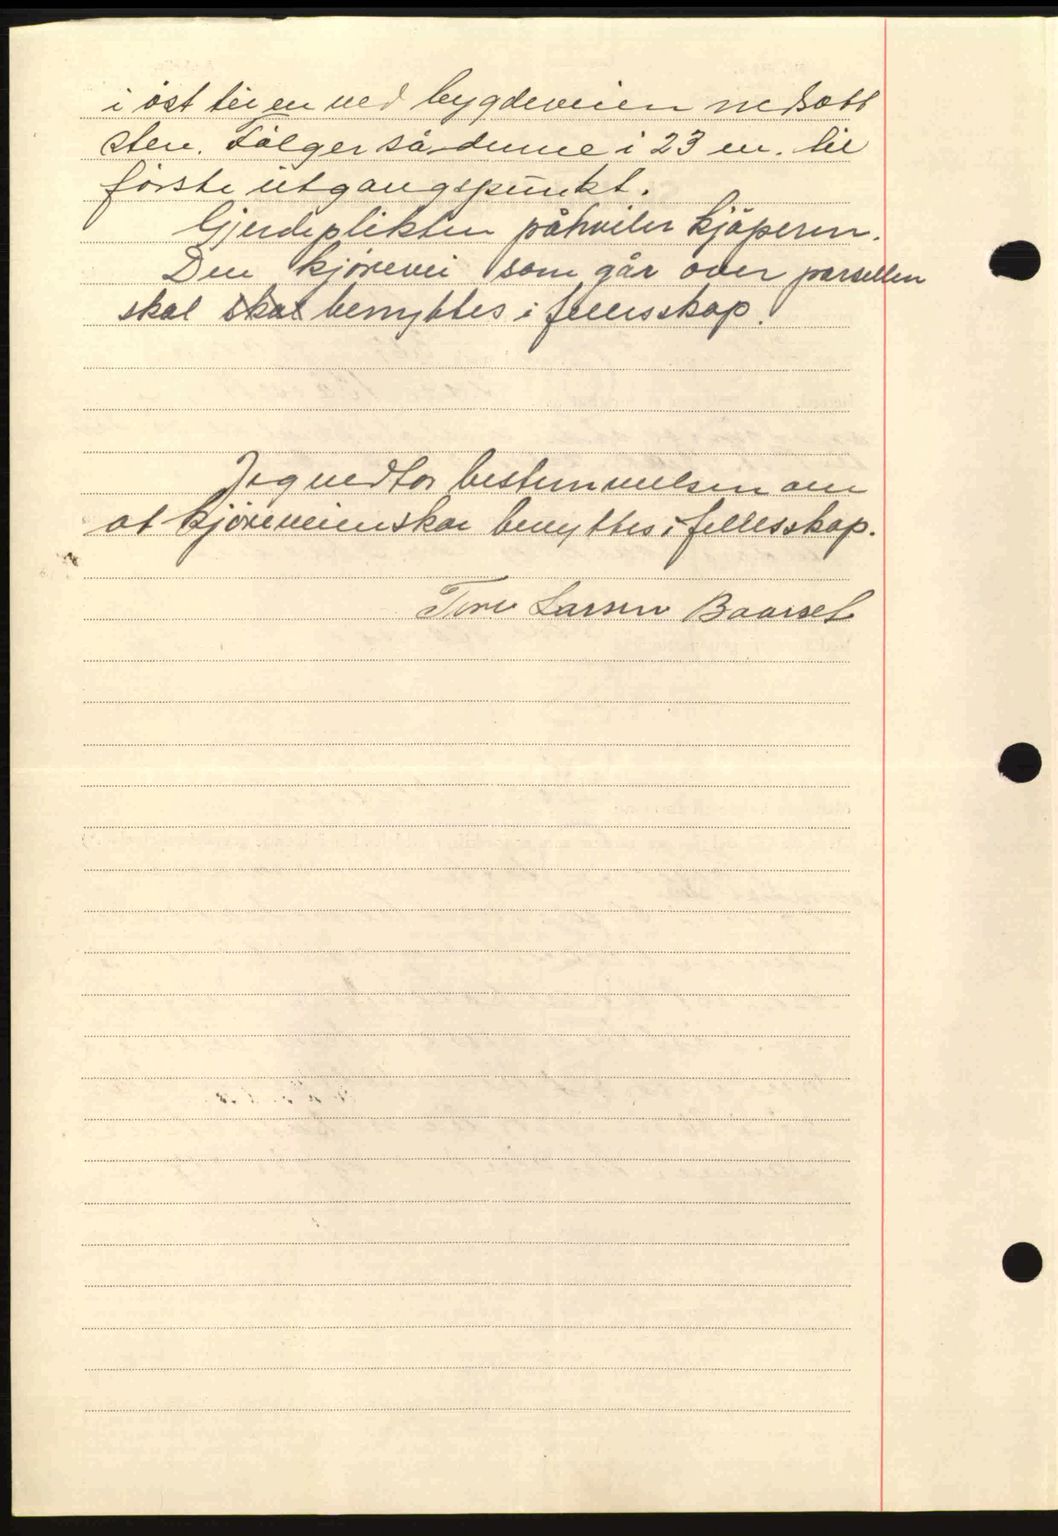 i øst til en ved bygdeveien nedsatt
sten. Følger så denne i 23 m. til
første utgangspunkt.
Gjerdeplikten påhviler kjøperen.
Den kjørevei som går over parsellen
skal skal benyttes i fellesskap.
Jeg vedtar bestemmelsen om
at kjøreveien skal benyttes i fellesskap.
Larsen Baarset